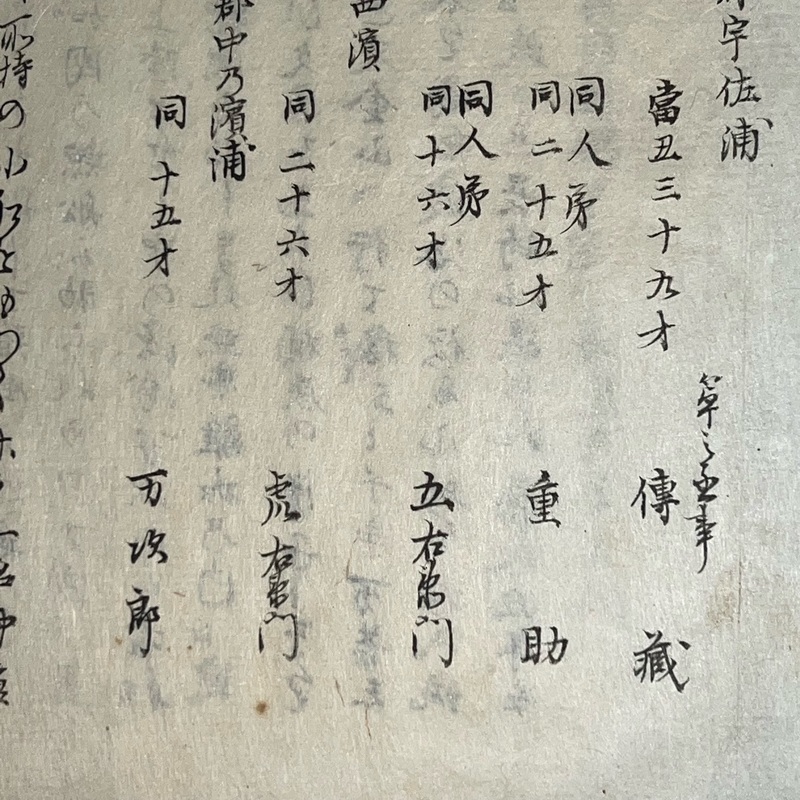 宇佐浦
當丑三十九才
筆之丞事
傳藏
同人弟
同二十五才 重助
同人弟
同十六才 五右衛門
西濱
同二十六才 虎右衛門
郡中乃濱浦
同十五才 万次郎
所持の